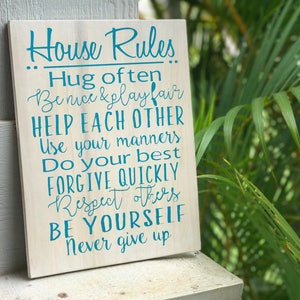 House Rules
Hug often
Be nice & play fair
HELP EACH OTHER
Use your manners
Do your best
FORGIVE QUICKLY
Respect others
BE YOURSELF
Never give up